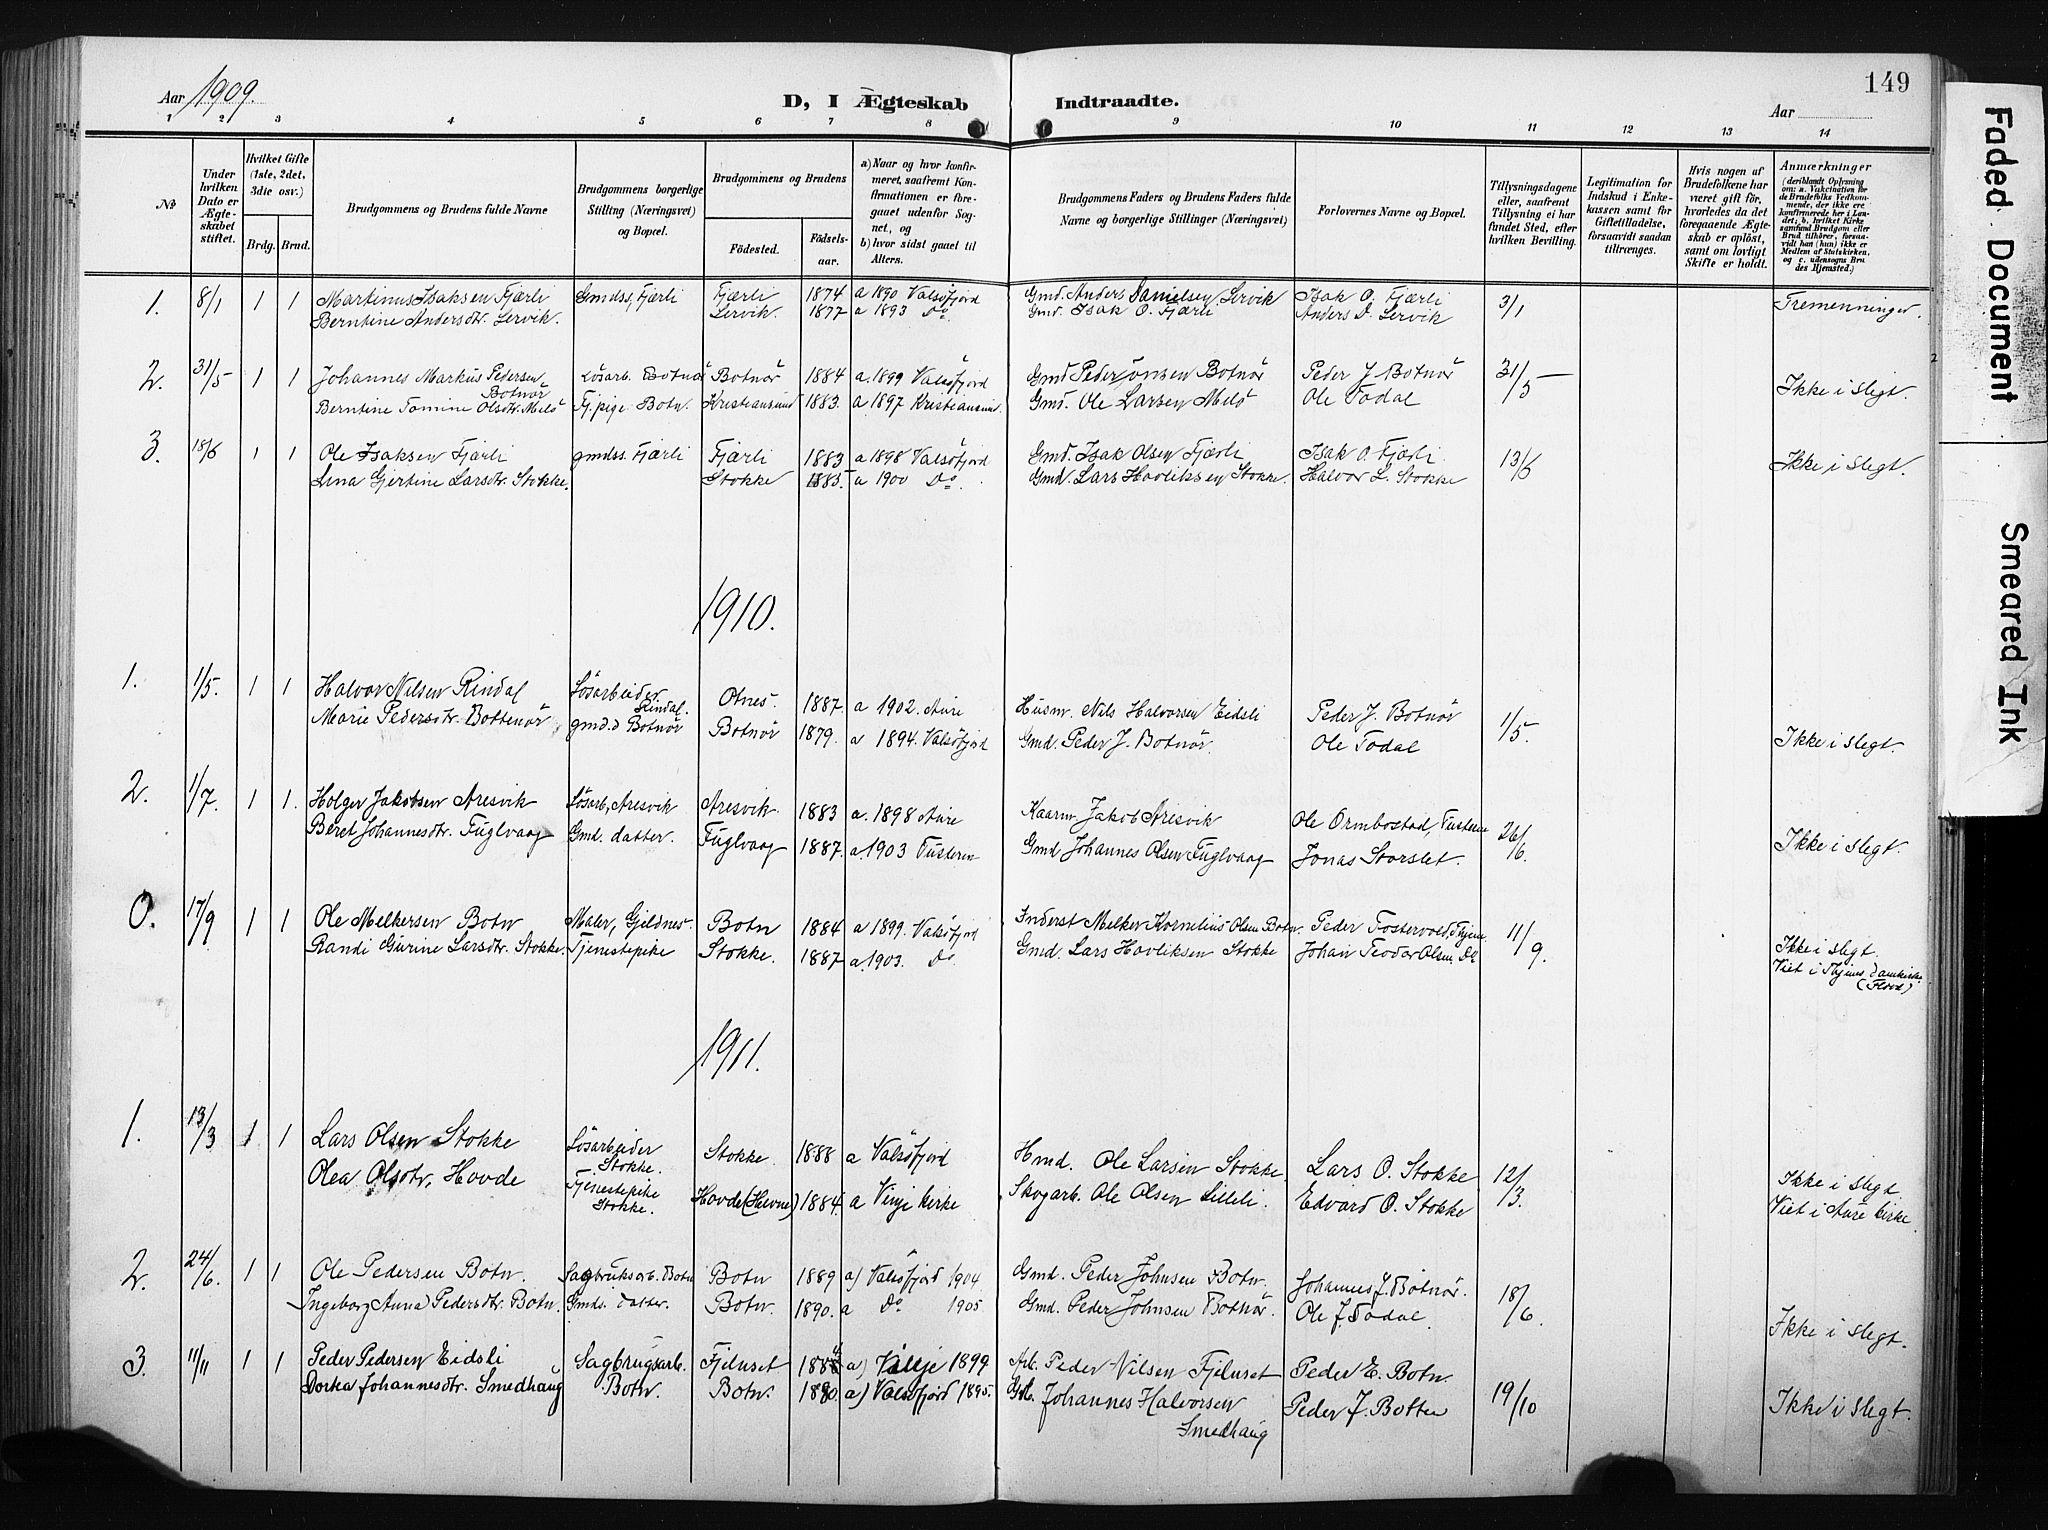 149
Aar 1909.
D, I Ægteskab Indtraadte.
Aar
1 2 3 4 5 6 7 8 9 10 11 12 13 14
No
Under hvilken Dato er Ægteskabet stiftet.
Hvilket Gifte (1ste, 2det, 3die osv.)
Brdg. Brud.
Brudgommens og Brudens fulde Navne
Brudgommens borgerlige Stilling (Næringsvei) og Bopæl.
Brudgommens og Brudens
Födested. Födselsaar.
a) Naar og hvor konfirmeret, saafremt Konfirmationen er foregaaet udenfor Sognet, og
b) hvor sidst gaaet til Alters.
Brudgommens Faders og Brudens Faders fulde Navne og borgerlige Stillinger (Næringsvei)
Forlovernes Navne og Bopæl.
Tillysningsdagene eller, saafremt Tillysning ei har fundet Sted, efter hvilken Bevilling.
Legitimation for Indskud i Enkekassen samt for Giftetilladelse, forsaavidt saadan tiltrænges.
Hvis nogen af Brudefolkene har været gift för, hvorledes da det foregaaende Ægteskab er oplöst, samt om lovligt Skifte er holdt.
Anmærkninger (deriblandt Oplysning om: a. Vakcination for de Brudefolks Vedkommende, der ikke ere konfirmerede her i Landet; b. hvilket Kirkesamfund Brudgom eller Brud tilhörer, forsaavidt han (hun) ikke er Medlem af Statskirken, og c. udensogns Brudes Hjemsted.)
1. 8/1 1 1 Martinus Isaksen Fjærli Gmdss, Fjærli Fjærli 1874 a 1890 Valsöfjord Gmd. Anders Danielsen Lervik Isak O. Fjærli 3/1 Tremenninger.
Berntine Andersdtr. Lervik. Lervik. 1877 a 1893 Do Gmd. Isak O. Fjærli Anders D. Lervik
2. 31/5 1 1 Johannes Markus Pedersen Botnör Lösarb. Botnör Botnör 1884 a. 1899 Valsöfjord Gmd Peder Jonsen Botnör Peder J. Botnör 31/5 Ikke i slegt.
Berntine Tomine Olsdtr. Melö Tj.pige Botn. Kristiansund 1883. a 1897 Kristiansund. Gmd. Ole Larsen Melö Ole Todal
3. 18/6 1 1 Ole Isaksen Fjærli gmdss. Fjærli Fjærli 1883 a 1898 Valsöfjord Gmd. Isak Olsen Fjærli Isak O. Fjærli 13/6 Ikke i slegt.
Lina Gjertine Larsdtr. Stokke. Stokke 1885. a 1900 Do. Gmd. Lars Havliksen Stokke. Halvor L. Stokke
1910.
1. 1/5. 1 1 Halvor Nilsen Rindal Lösarbeider Rindal. Otnes 1887. a 1902. Aure Husm. Nils Halvorsen Eidsli Peder J. Botnör 1/5. Ikke i slegt.
Marie Pedersdtr. Bottenör gmd.d Botnör Botnör 1879. a 1894. Valsöfjord Gmd. Peder J. Botnör. Ole Todal
2. 1/7. 1 1. Holger Jakobsen Aresvik Lösarb, Aresvik Aresvik 1883 a. 1898 Aure Kaarm. Jakob Aresvik Ole Ormbostad, Tusteren 26/6. Ikke i slegt.
Beret Johannesdtr. Fuglvaag Gmd. datter. Fuglvaag 1887. a. 1903 Tusteren Gmd Johannes Olsen Fuglvaag Jonas Storslet.
0. 17/9 1 1 Ole Melkersen Botn Maler, Gjeldnes Botn 1884 a 1899. Valsöfjord Inderst Melker Kornelius Olsen Botn. Peder Fostervold, Thjem. 11/9. Ikke i slegt.
Randi Gurine Larsdtr. Stokke. Tjenestepike Stokke. 1887 a. 1903. Do. Gmd. Lars Havliksen Stokke Johan Teodor Olsen Do Viet i Thjems Domkirke. (Flood)
1911.
1. 13/3 1 1 Lars Olsen Stokke Lösarbeider Stokke. Stokke 1888 a Valsöfjord Hmd. Ole Larsen Stokke. Lars O. Stokke 12/3. Ikke i slegt.
Olea Olsdtr. Hovde Tjenestepike Stokke. Hovde (Hevne) 1884. a Vinje kirke Skogarb. Ole Olsen Lilleli. Edvard O. Stokke Viet i Aure kirke.
2. 24/6. 1 1 Ole Pedersen Botn. Sagbruksarb. Botn Botn 1889 a) Valsöfjord 1904 Gmd. Peder Johnsen Botn. Johannes J. Botnör. 18/6. Ikke i slegt.
Ingeborg Anna Pedersdtr. Botn. Gmds. datter. Botn. 1890. a Do 1905. Gmd. Peder Johnsen Botnör. Ole J. Todal.
3. 11/11 1 1 Peder Pedersen Eidsli Sagbrugsarb. Botn. Fjeluset a) 1899 Arb. Peder Nilsen Fjeluset Peder E. Botn. 19/10 Ikke i slegt.
Dorka Johannesdtr. Smedhaug Botn. a) Valsöfjord 1895. Johannes Halvorsen Smedhaug Peder J. Botten
Faded Document
Smeared Ink